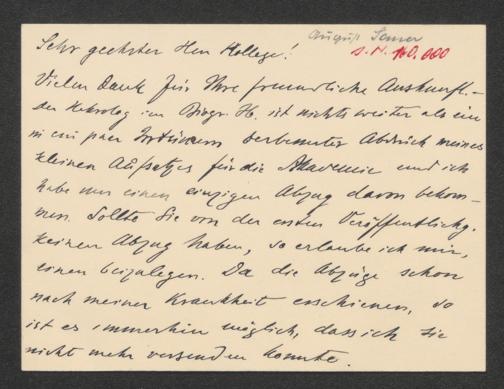 August Sauer
S.N. 160.000
Sehr geehrter Herr Kollege!
Vielen Dank für Ihre freundliche Auskunft. –
der Nekrolog im Biogr. Jb. ist nichts weiter als ein
in ein paar Irrtümern verbesserter Abdruck meines
kleinen Aufsatzes für die Akademie und ich
habe nur einen einzigen Abzug davon bekom-
men. Sollte Sie von der ersten Veröffentlichg.
keinen Abzug haben, so erlaube ich mir,
einen beizulegen. Da die Abzüge schon
nach meiner Krankheit erschienen, so
ist es immerhin möglich, dass ich Sie
nicht mehr versenden konnte.